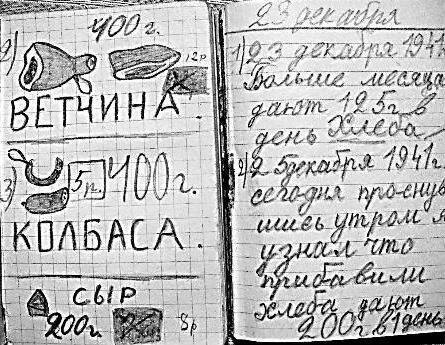 400 г.
2)
12р
ВЕТЧИНА.
3) 5р. 400г.
КОЛБАСА.
СЫР
200г. 8р
23 декабря
1) 23 декабря 1941
Больше месяца
дают 125г в
день Хлеба
2) 25декабря 1941г.
сегодня проснув
шись утром я
узнал что
прибавили
хлеба дают
200г. в 1день